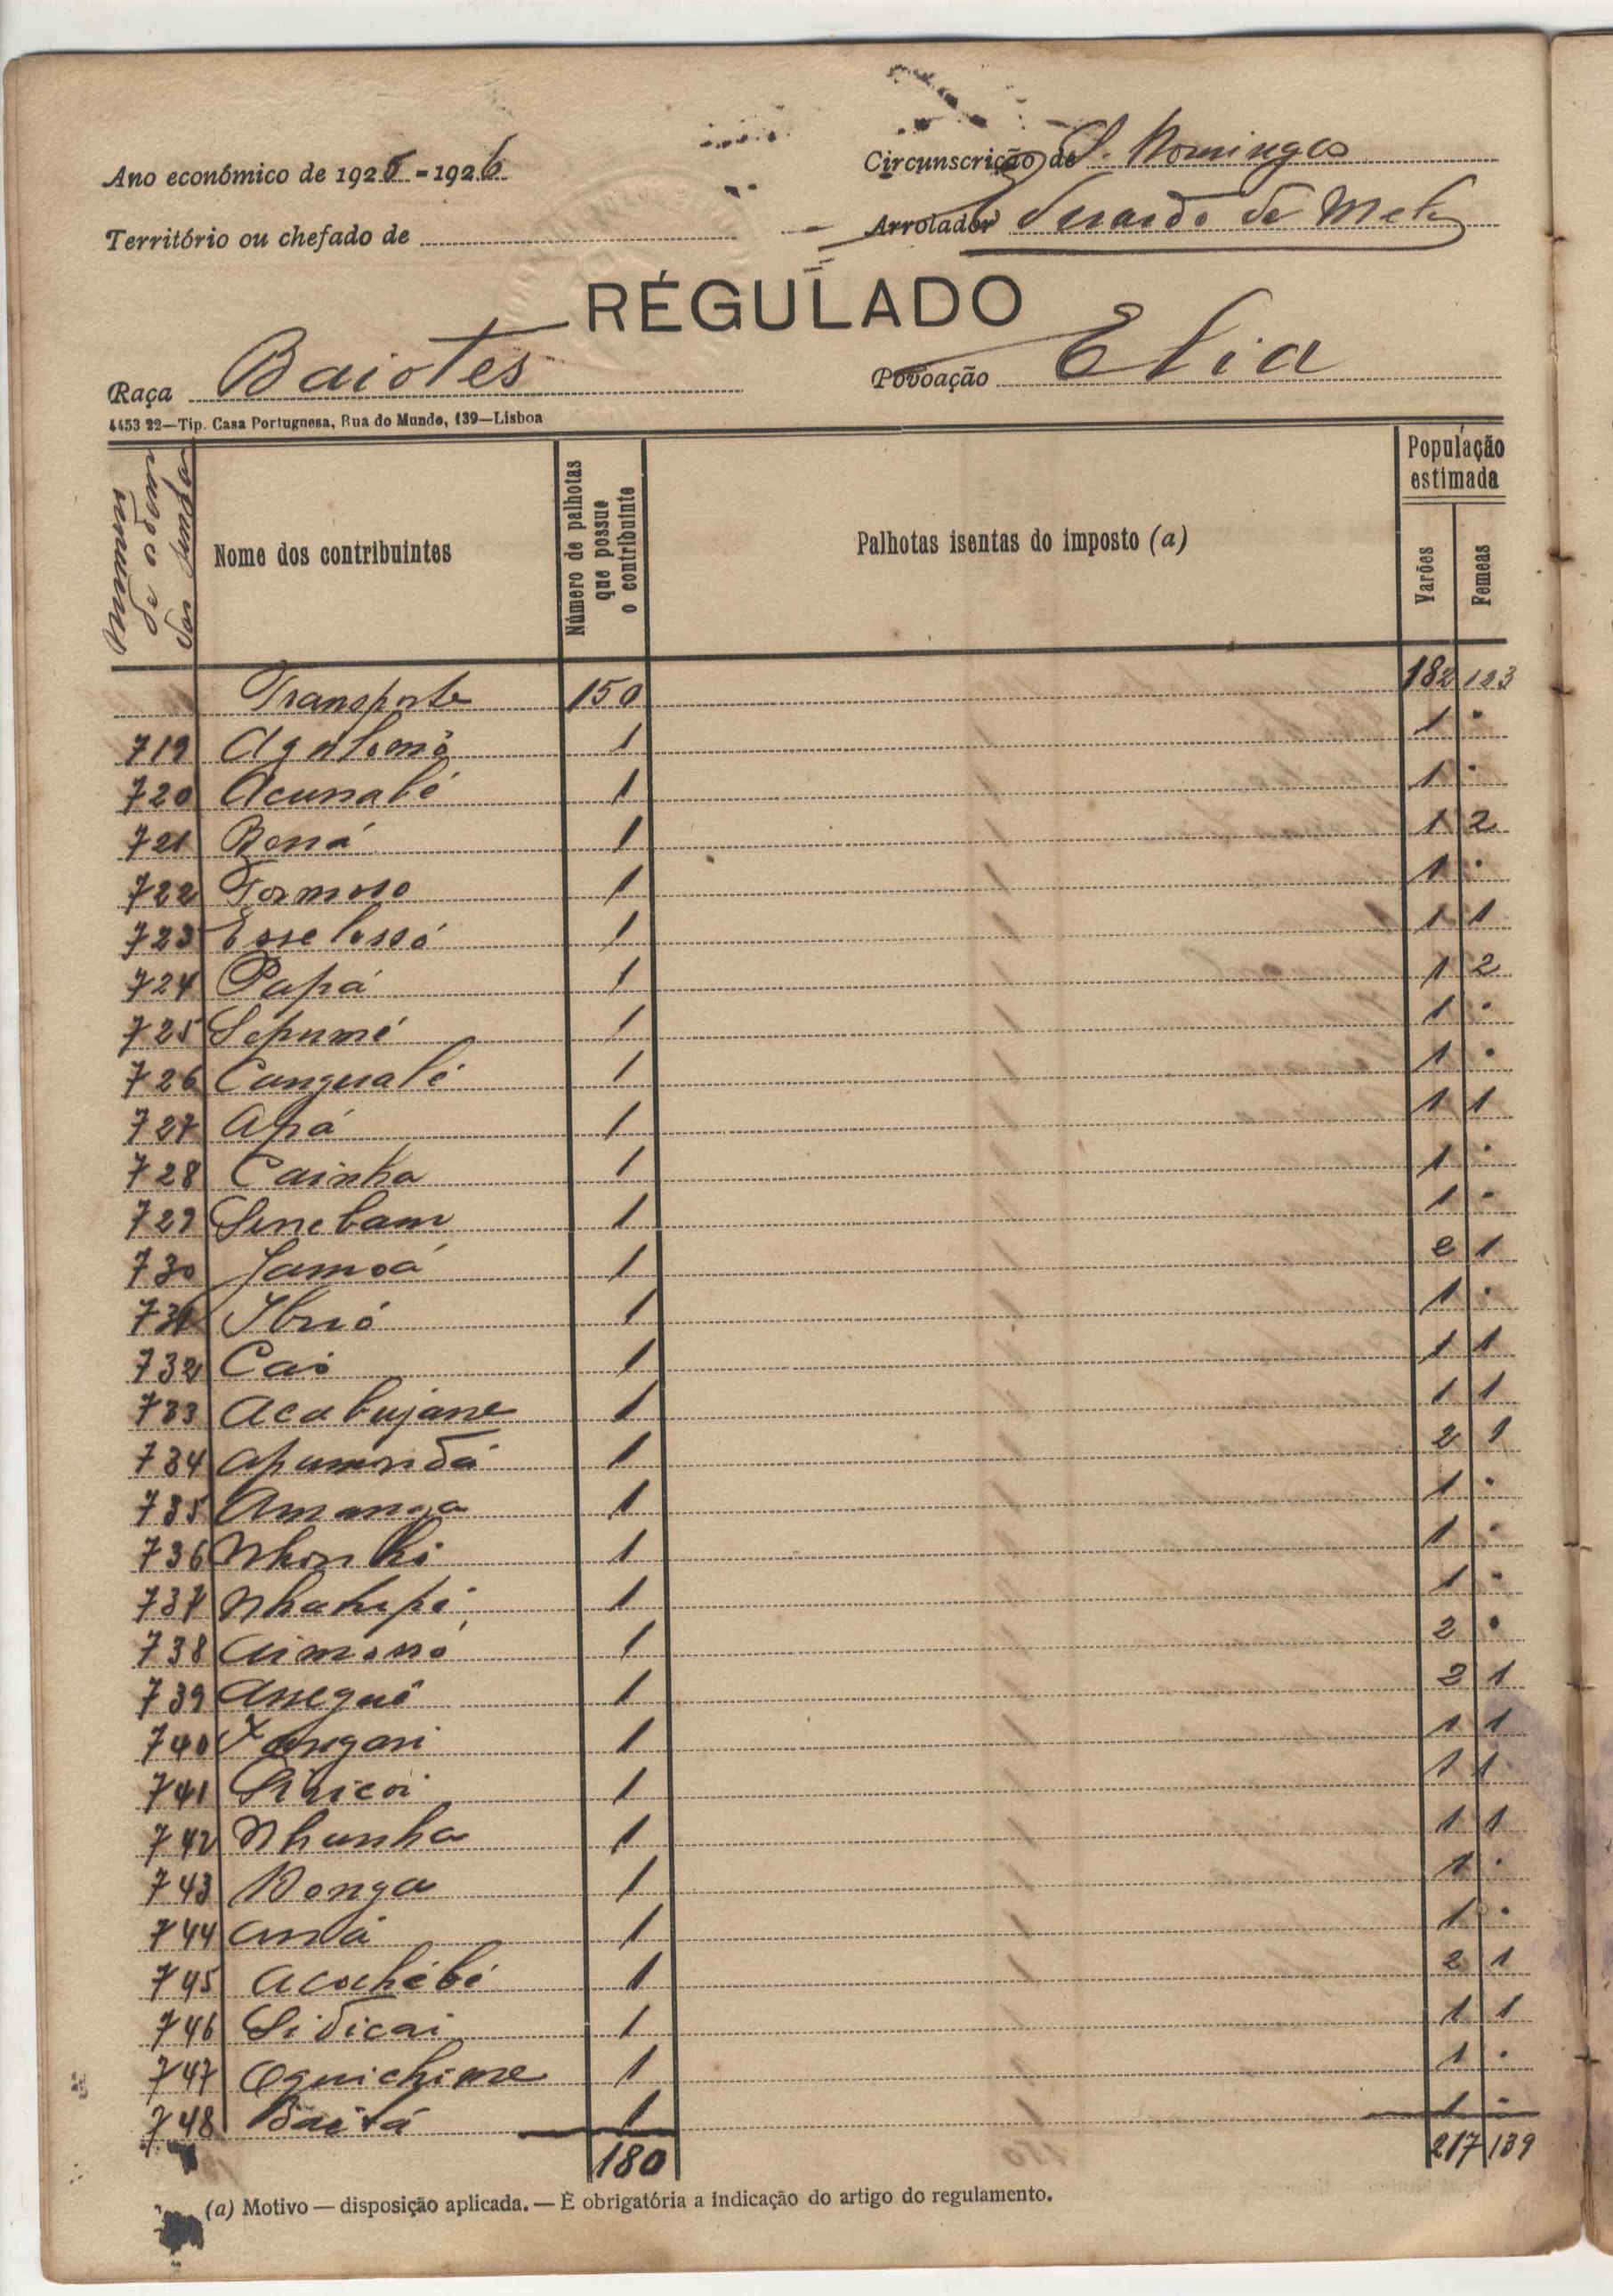 Ano económico de 1925-1926
Circunscrição de S. Domingos
Território ou chefado de
Arrolador Eduardo de Melo
RÉGULADO
Raça Baiotes
Povoação Elia
4453 22—Tip. Casa Portuguesa, Rua do Mundo, 139—Lisboa
Número de ordem das senhas
Nome dos contribuintes
Número de palhotas que possue o contribuinte
Palhotas isentas do imposto (a)
População estimada
Varões
Femeas
Transporte 150 182 123
719 1 1 .
720 Acunaló 1 1 .
721 Bená 1 1 2
722 Formoso 1 1 .
723 1 1 1
724 Papá 1 1 2
725 Sepumé 1 1 .
726 Cangualé 1 1 .
727 Apá 1 1 1
728 Cainha 1 1 .
729 Senebam 1 1 .
730 Jamoá 1 2 1
731 1 1 .
732 Cai 1 1 1
733 Acabujane 1 1 1
734 Apumondá 1 2 1
735 Amanga 1 1 .
736 1 1 .
737 1 1 .
738 Aimonó 1 2 .
739 Asseguó 1 2 1
740 Xangari 1 1 1
741 Siricoi 1 1 1
742 Nhunha 1 1 1
743 Donga 1 1 .
744 1 1 .
745 1 2 1
746 Sidicai 1 1 1
747 Oquichime 1 1 .
748 Baitá 1 1 .
180 217 139
(a) Motivo — disposição aplicada. — É obrigatória a indicação do artigo do regulamento.